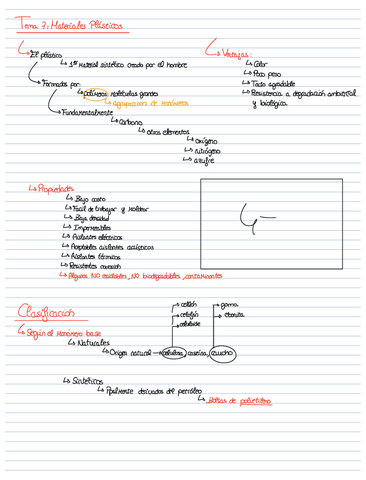 Tema 7: Materiales Plásticos
El plástico
1er Material sintético creado por el hombre
Formados por:
polímeros moléculas grandes
agrupaciones de Monómeros
Fundamentalmente
Carbono
otros elementos
oxígeno
nitrógeno
azufre
Ventajas:
Color
Poco peso
Tacto agradable
Resistencia a degradación ambiental
y biológica
Propiedades
Bajo costo
Fácil de trabajar y Moldear
Baja densidad
Impermeables
Aislantes eléctricos
Aceptables aislantes acústicos
Aislantes térmicos
Resistentes corrosión
Algunos NO reciclables, NO biodegradables, contaminantes
Clasificación
Según el Monómero base
Naturales
Origen natural celulosa, caseína, caucho
celofán
celuloide
goma
ebonita
Sintéticos
Ppalmente derivados del petróleo
Bolsas de polietileno